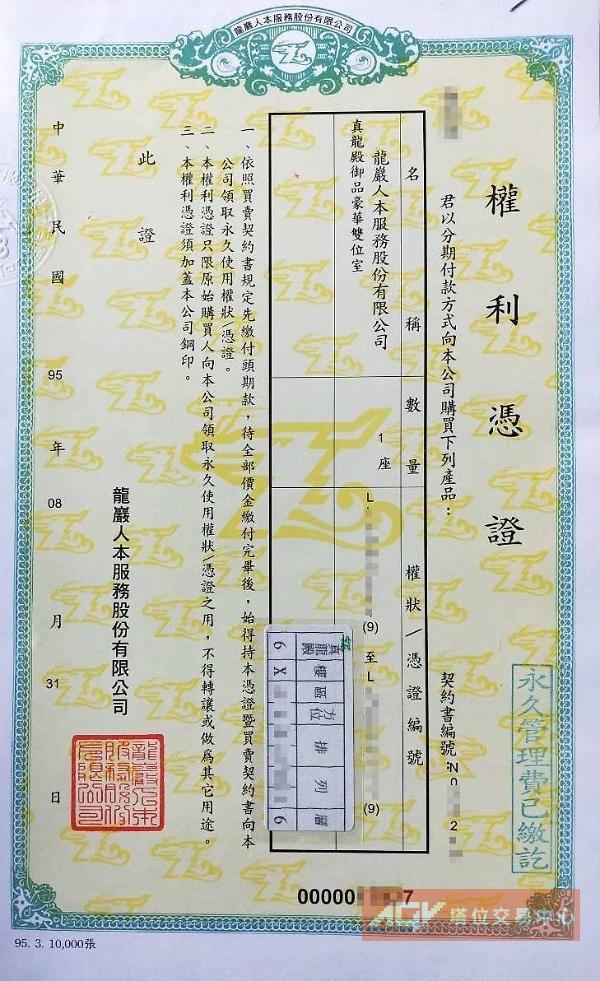 龍巖人本服務股份有限公司
權利憑證
契約書編號:No 2
永久管理費已繳訖
君以分期付款方式向本公司購買下列產品：
名稱 數量 權狀/憑證編號
龍巖人本服務股份有限公司
真龍殿御品豪華雙位室 1座 L. (9) 至 L (9)
真龍殿 樓 區 方位 排 列 層
6 X 6
一、依照買賣契約書規定先繳付頭期款，待全部價金繳付完畢後，始得持本憑證暨買賣契約書向本
公司領取永久使用權狀/憑證。
二、本權利憑證只限原始購買人向本公司領取永久使用權狀/憑證之用，不得轉讓或做為其它用途。
三、本權利憑證須加蓋本公司鋼印。
此證
龍巖人本服務股份有限公司
中華民國 95 年 08 月 31 日
00000 7
AGV 塔位交易中心
95. 3. 10,000張